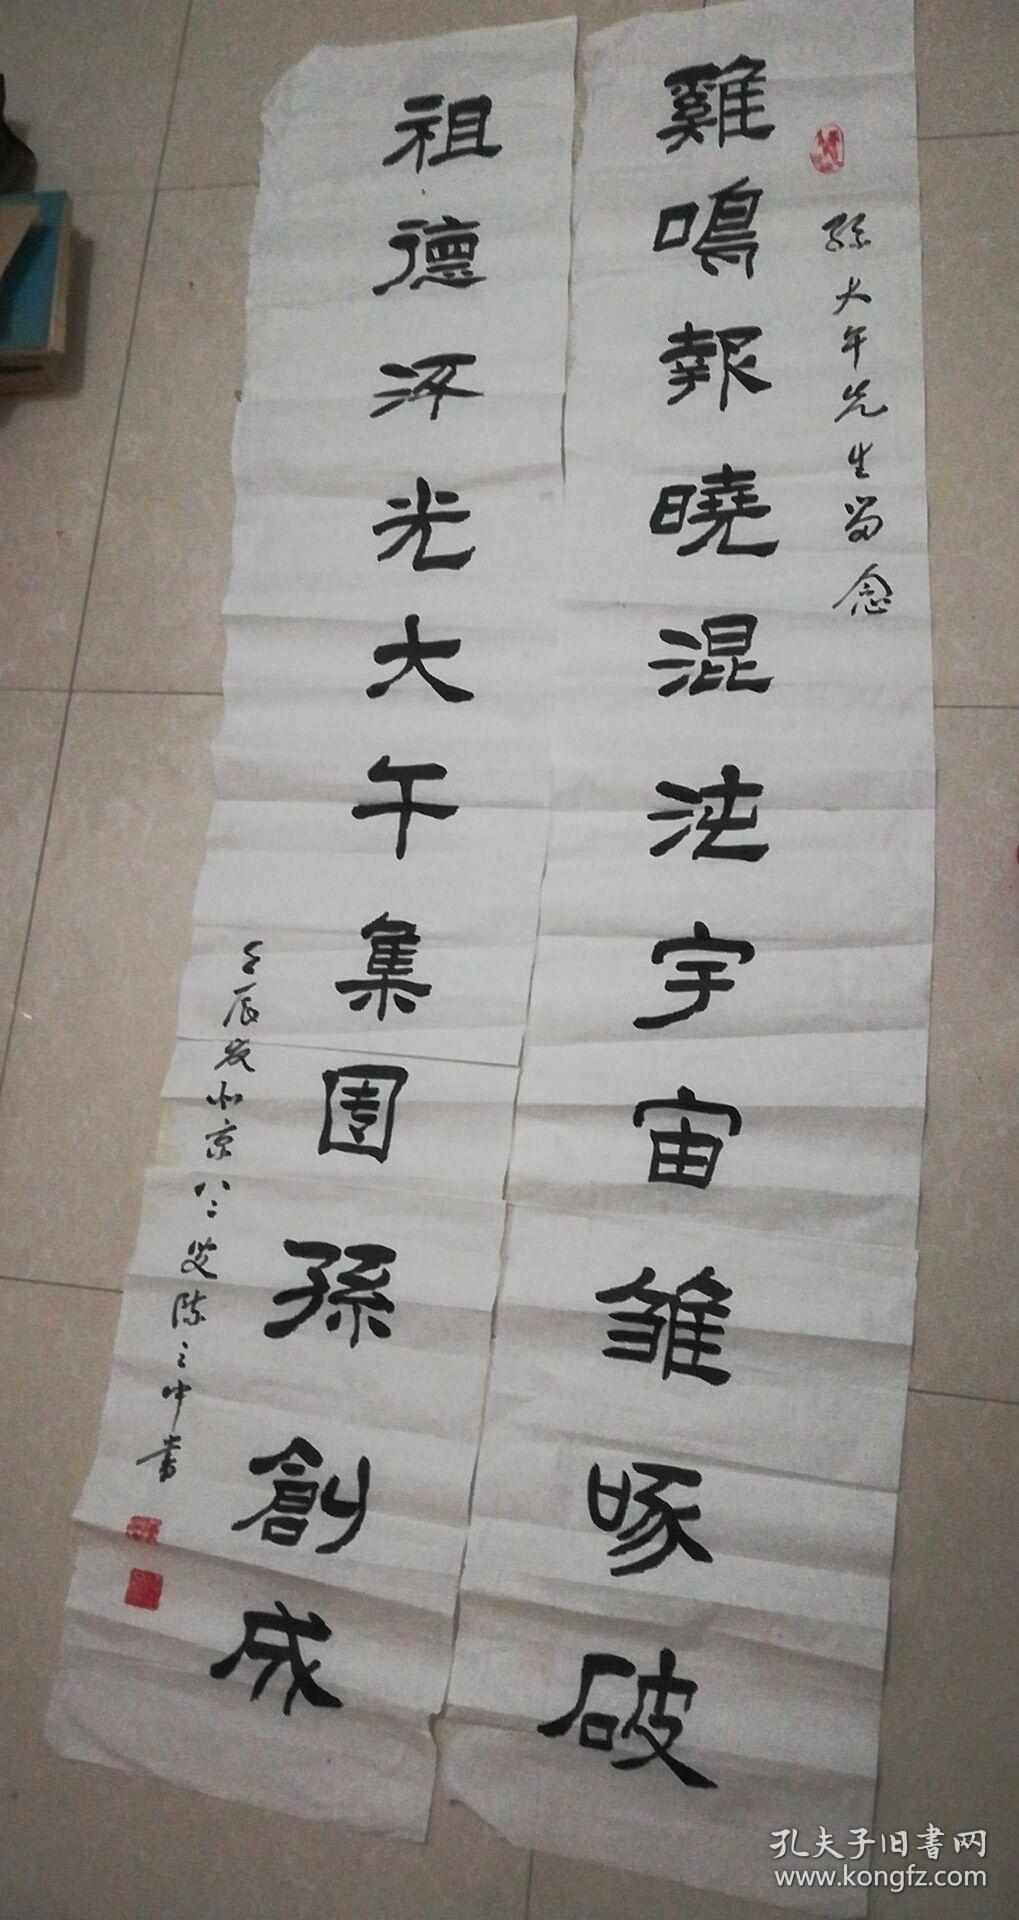 孫大午先生留念
雞鳴報曉混沌宇宙雏啄破
祖德环光大午集团孫創成
壬辰岁北京八二叟陈之中書
孔夫子旧書网
www.kongfz.com